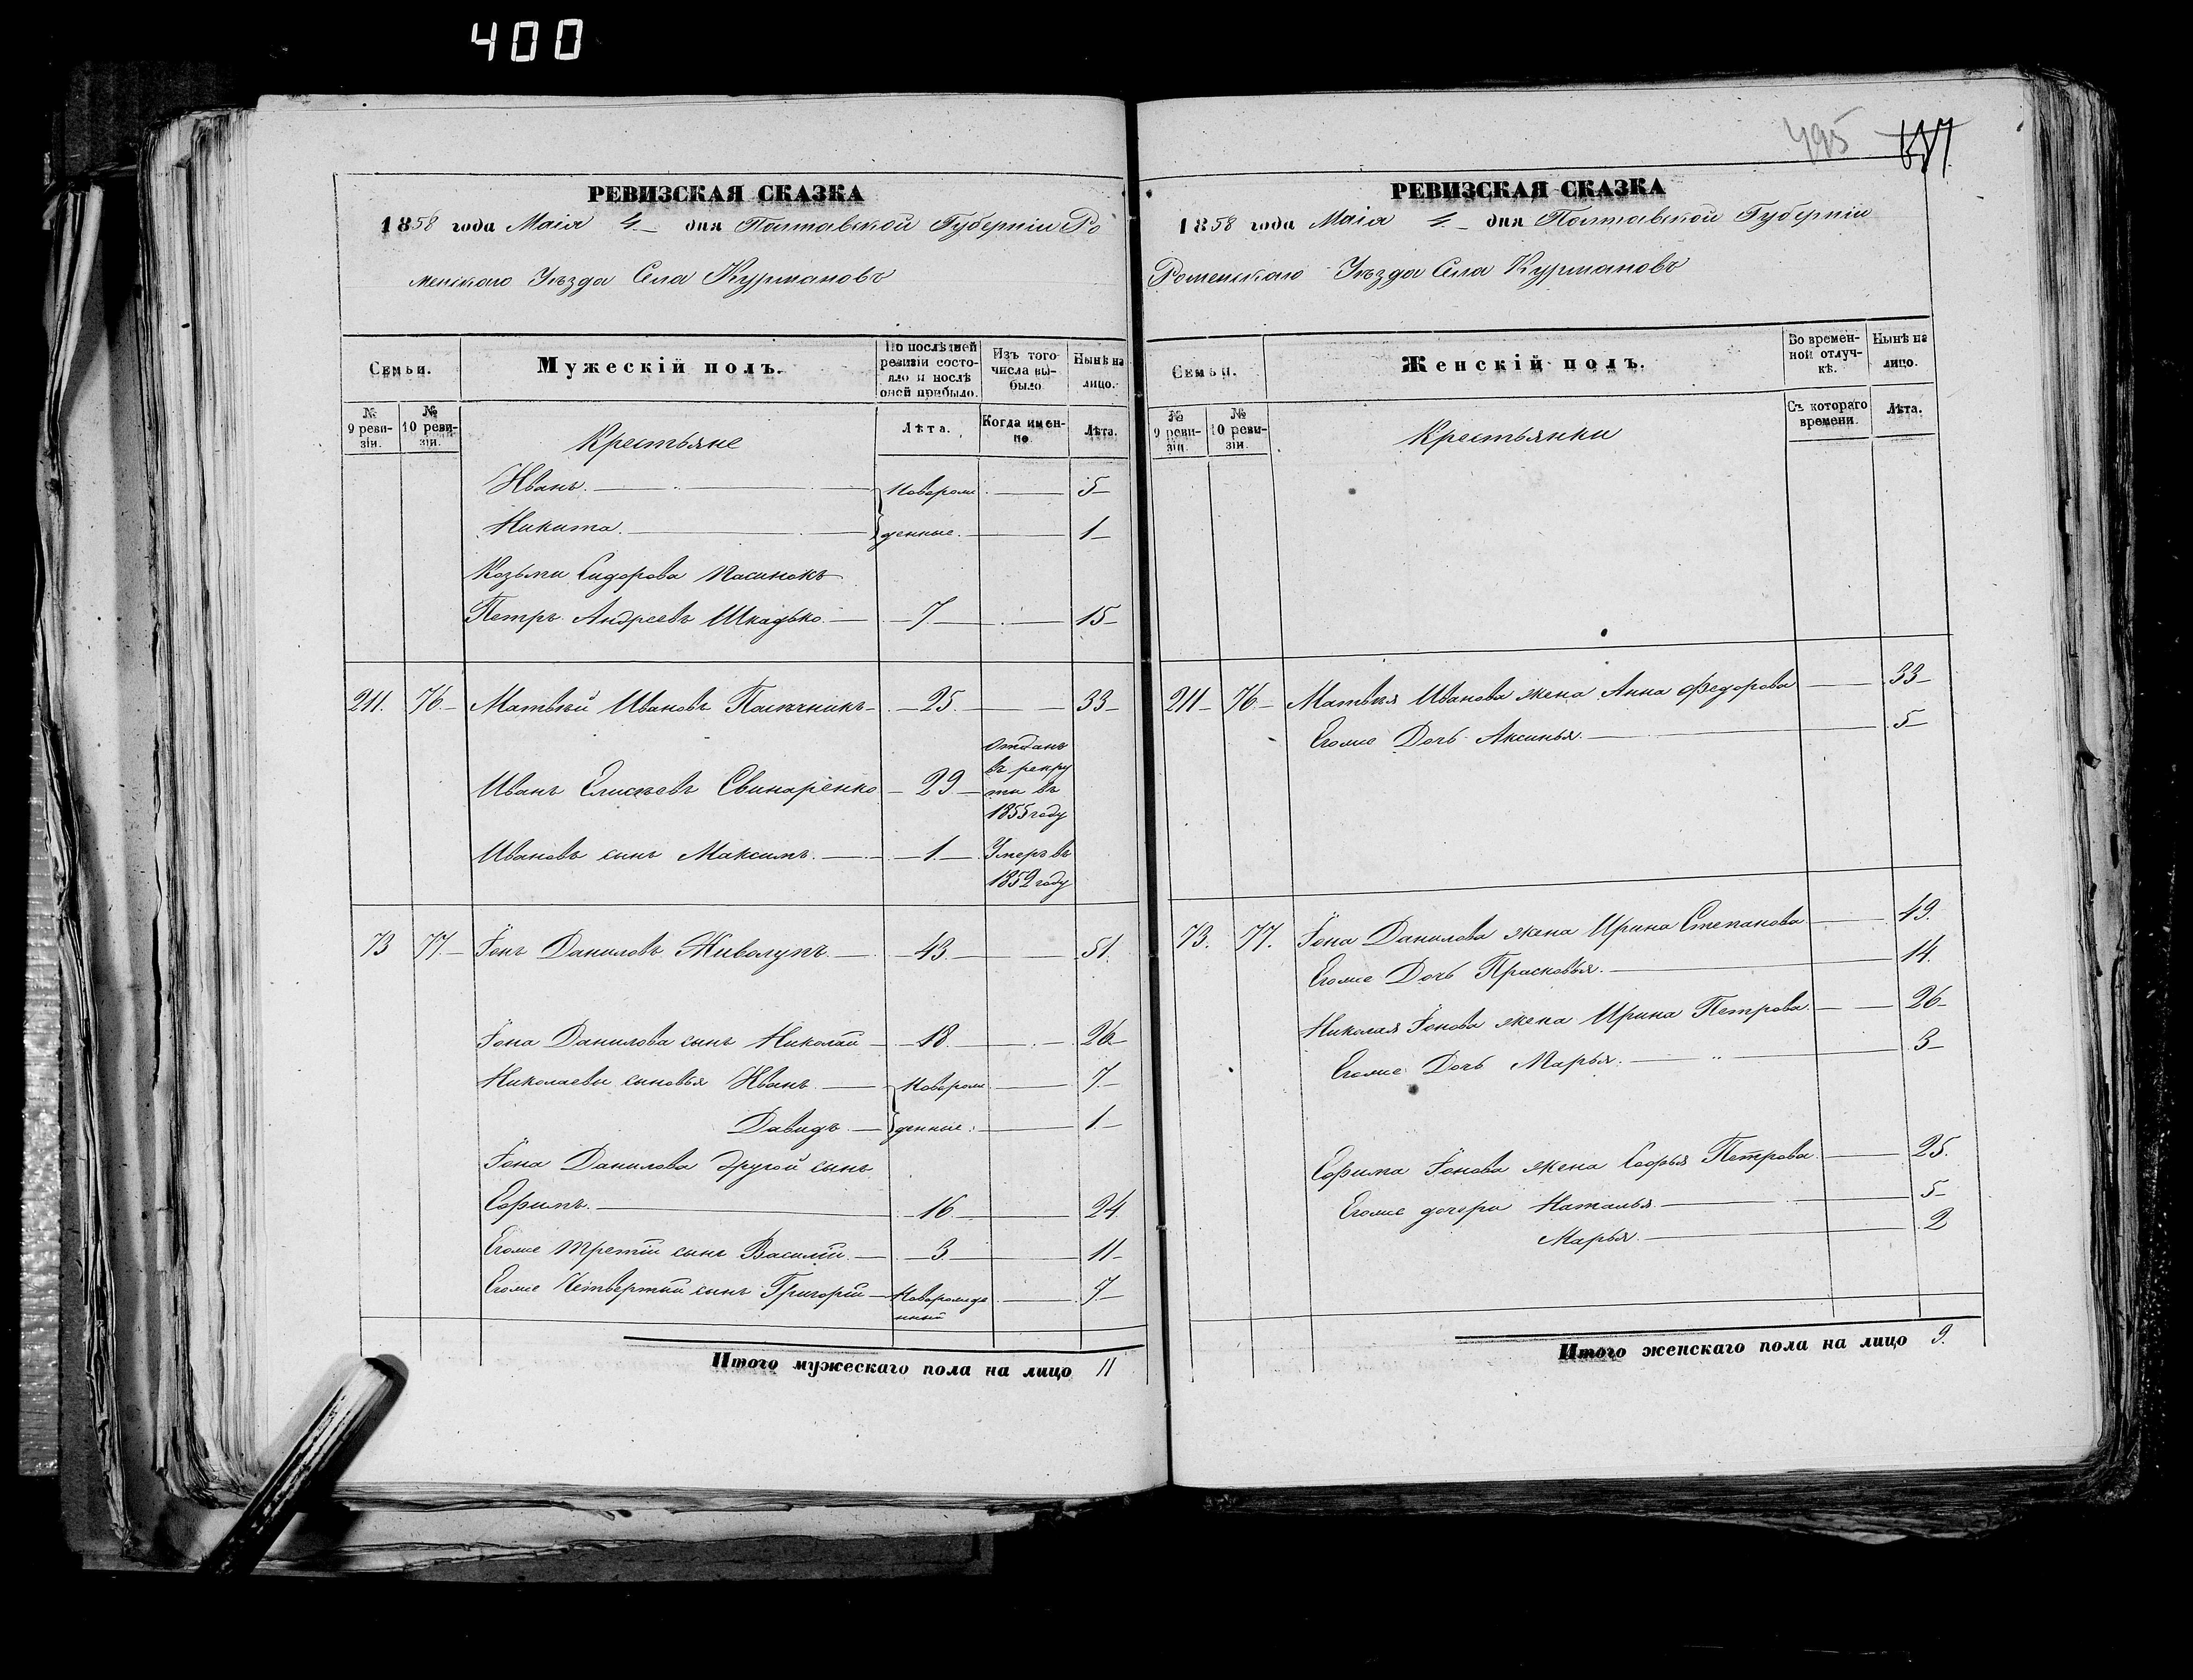 400
495
РЕВИЗСКАЯ СКАЗКА
1858 года Маія 4 дня Полтавской Губерніи Ро
менскаго Уѣзда Села Курмановъ
Семьи.
Мужескій полъ.
По послѣдней ревизіи состояло и послѣ оной прибыло.
Изъ того числа выбыло.
Нынѣ на лицо.
№ 9 ревизіи.
№ 10 ревизіи.
Крестьяне
Лѣта.
Когда именно.
Лѣта.
Иванъ. Новорож 5
Никита. денные. 1
Козьмы Сидорова пасинокъ
Петръ Андреевъ Шкадько 7 15
211. 76 Матвѣй Ивановъ 25 33
Отданъ
въ рекру
Иванъ Елисѣевъ Свинаренко 29 ты въ
1855 году
Ивановъ сынъ Максимъ. 1. Умеръ въ
1852 году
73 77 Іонъ Даниловъ Живолупъ. 43 51.
Іона Данилова сынъ Николай 18 26
Николаевы сыновья Иванъ Новорож 7
Давидъ денные. 1
Іона Данилова другой сынъ
Ефимъ. 16 24
Егоже третій сынъ Василій 3 11
Егоже Четвертый сынъ Григорій Новорожде 7
нный
Итого мужескаго пола на лицо 11
РЕВИЗСКАЯ СКАЗКА
1858 года Маія 4 дня Полтавской Губерніи
Роменскаго Уѣзда Села Курмановъ
Семьи.
Женскій полъ.
Во временной отлучкѣ.
Нынѣ на лицо.
№ 9 ревизіи.
№ 10 ревизіи.
Крестьянки
Съ котораго времени.
Лѣта.
211 76 Матвѣя Иванова жена Анна Федорова 33
Егоже Дочь Аксинья. 5
73. 77. Іона Данилова жена Ирина Степанова 49.
Егоже Дочь Прасковья. 14.
Николая Іонова жена Ирина Петрова 26
Егоже Дочь Марья. 3
Ефима Іонова жена Софья Петрова 25.
Егоже дочери Наталья 5
Марья. 2
Итого женскаго пола на лицо 9.